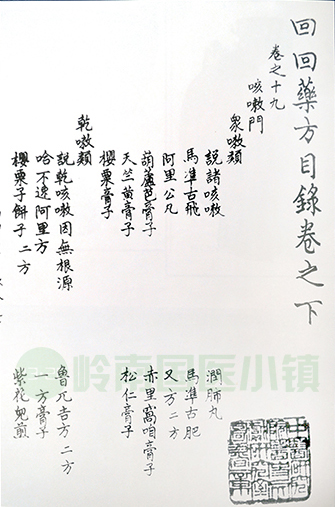 回回藥方目錄卷之下
卷之十九
咳嗽門
衆嗽類
說諸咳嗽 潤肺丸
馬準古飛 馬準古肥
阿里公凡 又方二方
葫蘆芭膏子 赤里窩咱膏子
天竺黃膏子 松仁膏子
櫻栗膏子
乾嗽類
說乾咳嗽因無根源 魯兀吉方二方
哈不阿里方 一方膏子
櫻栗子餅子二方 紫花兒煎
岭南国医小镇